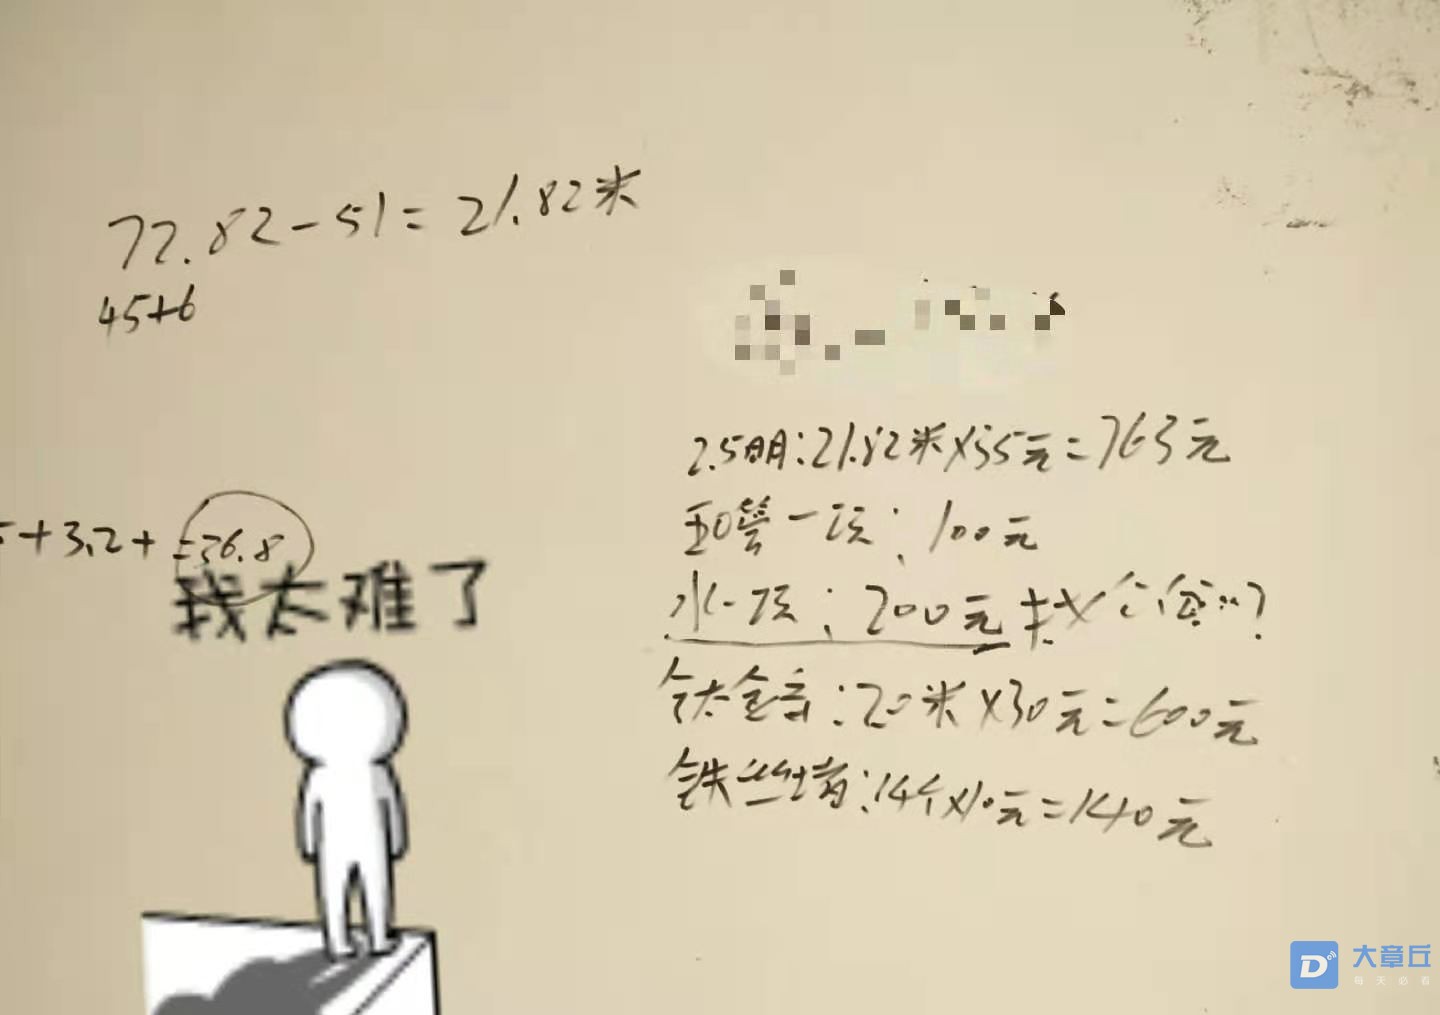 72.82-51=21.82米
45+6
2.5明:21.82米×35元=763元
配管一项:100元
+3.2+=36.8
我太难了
水一项:200元
钛金条:20米×30元=600元
铁丝堵:14个×10元=140元
大章丘
每天必看